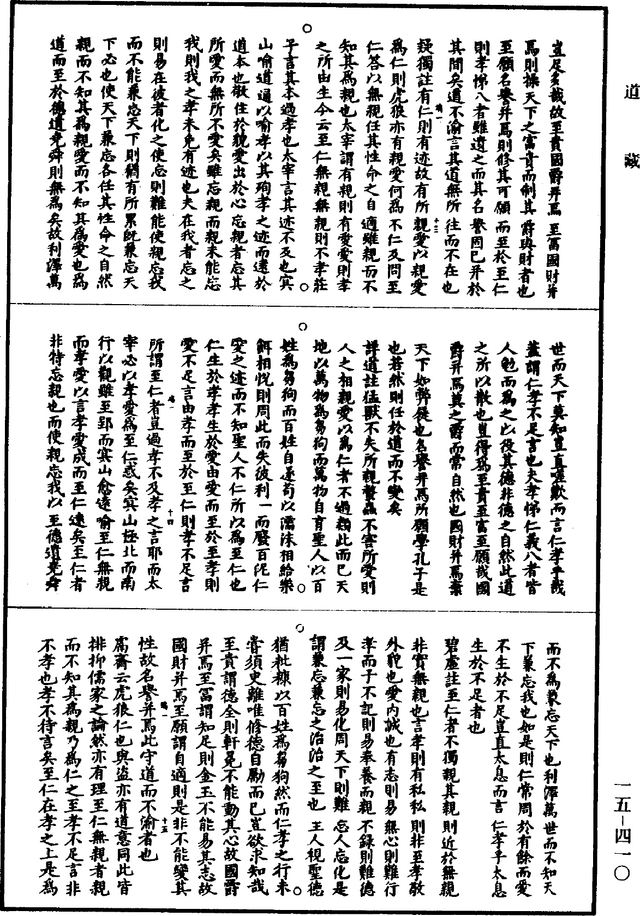 道藏
豈足多哉故至貴國爵并焉至富國財并
焉則操天下之富貴而制其爵與財者也
至願名譽并焉則修其可願而至於至仁
則孝悌八者雖遺之而其名譽固已并於
其間矣道不渝言其道無所往而不在也
疑獨註有仁則有迹故有所親愛以親愛
為仁則虎狼亦有親愛何為不仁及問至
仁答以無親任其性命之自適雖親而不
知其為親也太宰謂有親則有愛愛則孝
之所由生今云至仁無親無親則不孝莊
子言其本過孝也太宰言其迹不及也冥
山喻道通以喻孝以其殉孝之迹而遠於
道本也敬住於貌愛出於心忘親者忘其
所愛而無所不愛矣雖忘親而親未能忘
我則我之孝未免有迹也夫在我者忘之
則易在彼者化之使忘則難能使親忘我
而不能兼忘天下則猶有所累既兼忘天
下必也使天下兼忘各任其性命之自然
親而不知其為親愛而不知其為愛也為
道而至於德遺堯舜則無為矣故利澤萬
世而天下莫知豈直嗟歎而言仁孝乎哉
蓋謂仁孝不足言也夫孝悌仁義八者皆
人勉而為之以役其德非德之自然此道
之所以散也豈得為至貴至富至願哉國
爵并焉莫之爵而常自然也國財并焉棄
天下如弊屣也名譽并焉所願學孔子是
也若然則任於道而不變矣
詳道註猛獸不失所親螫蟲不害所愛則
人之相親愛以為仁者不過類此而已天
地以萬物為芻狗而萬物自育聖人以百
姓為芻狗而百姓自遂苟以濡沫相給樂
餌相悅則周此而失彼利一而廢百泥仁
愛之迹而不知聖人不仁所以為至仁也
仁生於孝孝生於愛由愛而至於至孝則
愛不足言由孝而至於至仁則孝不足言
所謂至仁者豈過孝不及孝之言耶而太
宰必以孝愛為至仁惑矣冥山極北而南
行以觀雖至郢而冥山愈遠喻至仁無親
而孝愛以言孝愛成而至仁遠矣至仁者
非特忘親也而使親忘我以至德遺堯舜
而不為兼忘天下也利澤萬世而不知天
下兼忘我也如是則仁常周於有餘而愛
不生於不足豈直太息而言仁孝乎太息
生於不足者也
碧虛註至仁者不獨親其親則近於無親
非實無親也言孝則有私私則非至孝敬
外貌也愛內誠也有志則易無心則難行
孝而子不記則易奉養而親不錄則難德
及一家則易化周天下則難忘人忘化是
謂兼忘兼忘之治治之至也王人視聖德
猶粃糠以百姓為芻狗然而仁孝之行未
嘗須史離唯修德自勵而已豈欲求知哉
至貴謂德全則軒冕不能動其心故國爵
并焉至富謂知足則金玉不能易其志故
國財并焉至願謂自適則是非不能變其
性故名譽并焉此守道而不渝者也
鬳齋云虎狼仁也與盜亦有道意同此皆
排抑儒家之論然亦有理至仁無親者親
而不知其為親乃為仁之至孝不足言非
不孝也孝不待言矣至仁在孝之上是為
一五-四一〇